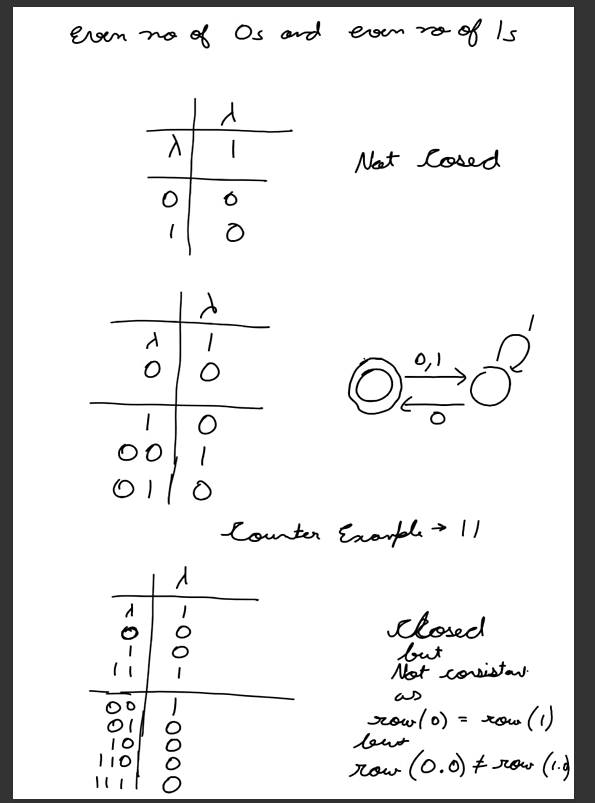 Even no of 0s and even no of 1s
λ
λ 1
Not Cosed
0 0
1 0
λ
λ 1
0 0
1 0
00 1
01 0
0,1
1
0
Counter Example → 11
λ
λ 1
0 0
1 0
11 1
00 1
01 0
10 0
110 0
111 0
Closed
but
Not consistant
as
row(0) = row(1)
but
row (0.0) ≠ row (1.0)